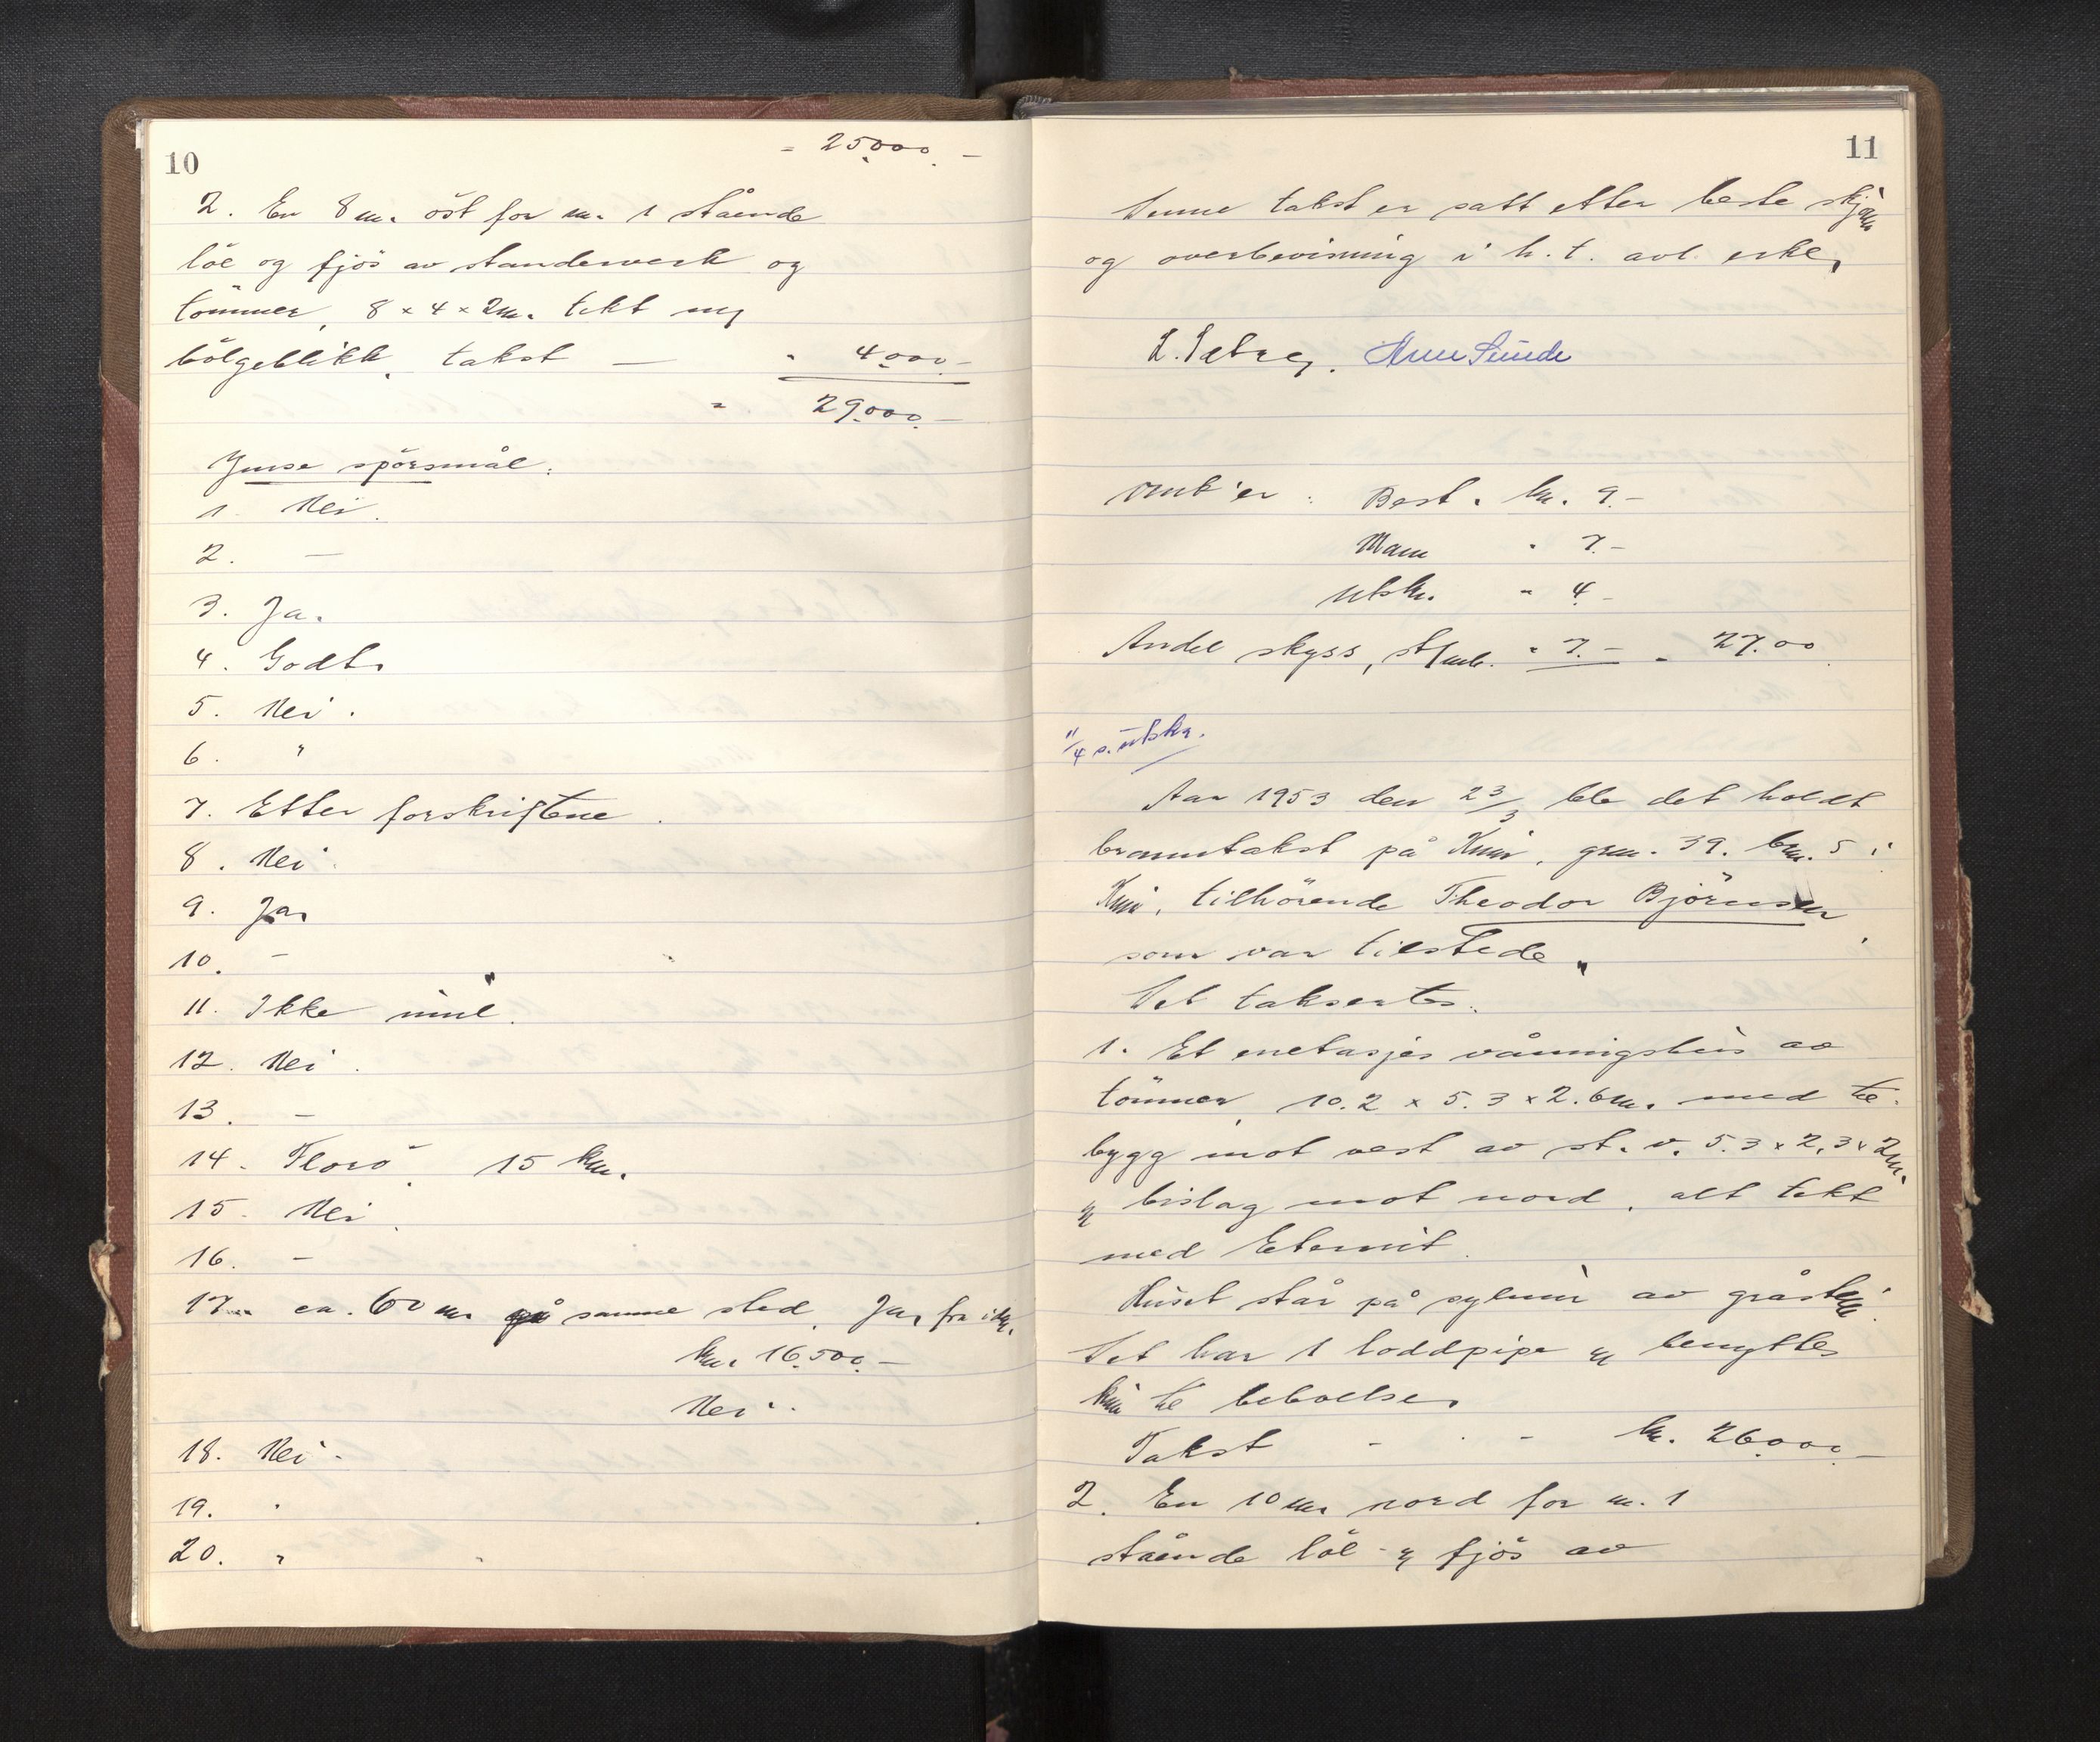 10
= 25.000.-
2. En 8 m. öst for nr. 1 stående
löe og fjös av standerverk og
tömmer, 8 x 4 x 2 m. tekt m/
bölgeblikk, takst — " 4.000.-
= 29.000.-
Ymse spörsmål:
1. Nei.
2. —
3. Ja.
4. Godt.
5. Nei.
6. "
7. Etter forskriftene.
8. Nei.
9. Ja.
10. -
11. Ikke innl.
12. Nei.
13. -
14. Florö, 15 km.
15. Nei.
16. -
17. ca. 60 m. samme sted. Ja, fra
kr. 16.500.-
Nei.
18. Nei.
19. "
20. "
11
Denne takst er satt etter beste skjönn
og overbevisning i h.t. avl. erkl.
Arne Sunde
Omk'er: Best. kr. 9.-
Mann " 7.-
Utskr. " 4.-
Andel skyss, " 7.- = 27.00
11/4 s. utskr.
Aar 1953 den 23/3 ble det holdt
branntakst på Kinn, grn. 39. brn. 5 i
Kinn, tilhörende Theodor Björnsen
som var tilstede.
Det taksertes:
1. Et enetasjes våningshus av
tömmer, 10.2 x 5.3 x 2.6 m. med til-
bygg mot vest av st. v. 5.3 x 2,3 x 2 m.
og bislag mot nord, alt tekt
med Eternit.
Huset står på sylmur av gråstein.
Det har 1 loddpipe og benyttes
kun til beboelse.
Takst - - - kr. 26.000.-
2. En 10 m. nord for nr. 1
stående löe og fjös av